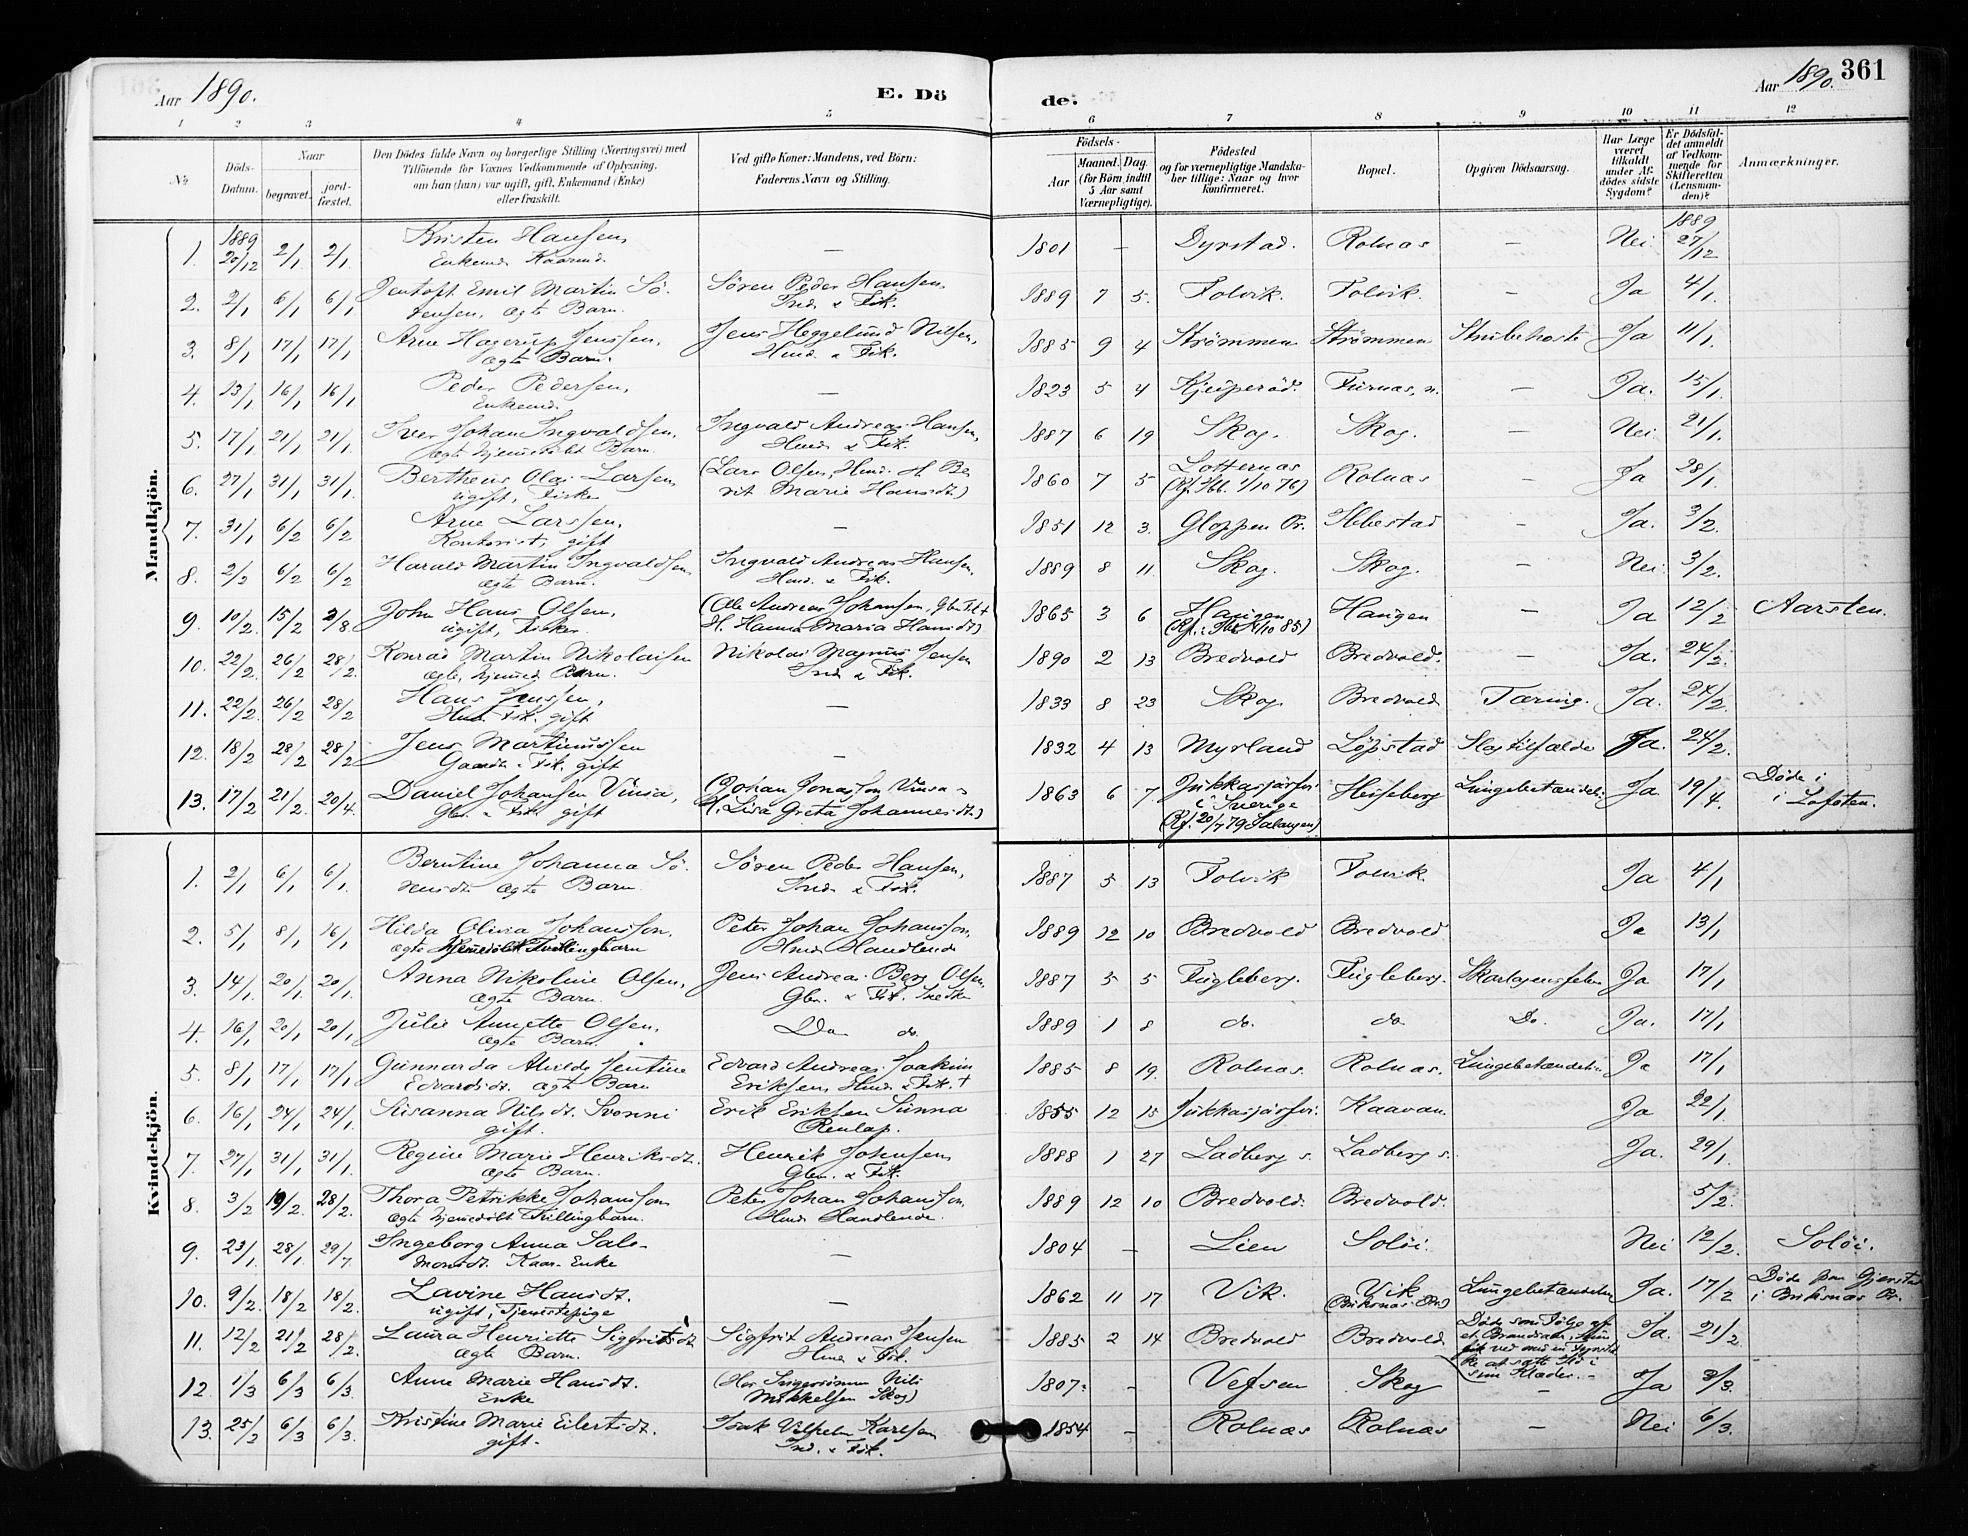 Aar 1890.
E. Dö
de.
Aar 1890.
361
1 2 3 4 5 6 7 8 9 10 11 12
No
Döds-Datum.
Naar
begravet.
jord-fæstet.
Den Dödes fulde Navn og borgerlige Stilling (Næringsvei) med
Tilföiende for Voxnes Vedkommende af Oplysning,
om han (hun) var ugift, gift, Enkemand (Enke)
eller fraskilt.
Ved gifte Koner: Mandens, ved Börn:
Faderens Navn og Stilling.
Födsels-
Aar
Maaned. Dag.
(for Börn indtil
5 Aar samt
Værnepligtige).
Födested
og for værnepligtige Mandska-
ber tillige: Naar og hvor
konfirmeret.
Bopæl.
Opgiven Dödsaarsag.
Har Læge
været
tilkaldt
under Af-
dödes sidste
Sygdom?
Er Dödsfal-
det anmeldt
af Vedkom-
mende for
Skifteretten
(Lensman-
den)?
Anmærkninger.
Mandkjön.
1. 1889 20/12 2/1 2/1 Kristen Hansen, — 1801 — Dyrstad. Rolnæs — Nei 1889 27/12
Enkemd. Kaarmd.
2. 2/1 6/1 6/1 Jentoft Emil Martin Sö- Sören Peder Hansen, 1889 7 5. Folvik. Folvik. — Ja 4/1.
rensen, ægte Barn. Ind. & Fisk.
3. 8/1 17/1 17/1 Arne Hagerup Jenssen, Jens Heggelund Nilsen, 1885 9 4 Strömmen Strömmen Strubehoste Ja 11/1.
ægte Barn. Hmd. & Fisk.
4. 13/1 16/1 16/1 Peder Pedersen, — 1823 5 4 Kjuperöd. Furnæs, n. — Ja. 15/1.
Enkemd.
5. 17/1 21/1 21/1 Iver Johan Ingvaldsen, Ingvald Andreas Hansen, 1887 6 19 Skog. Skog. — Nei. 21/1.
ægte hjemedöbt Barn. Hmd. & Fisk.
6. 27/1 31/1 31/1 Bertheus Olai Larsen (Lars Olsen, Hmd. H. Be- 1860 7 5 Lotternæs Rolnæs — Ja 28/1.
ugift, Fisker rit Marie Hansdt.) (Kf. Ibb. 1/10 76)
7. 31/1 6/2 6/2 Arne Larssen, — 1851 12 3. Gloppen Pr. Ibbestad — Ja. 3/2.
Kontorist, gift
8. 2/2 6/2 6/2 Harald Martin Ingvaldsen Ingvald Andreas Hansen, 1889 8 11. Skog. Skog. — Nei. 3/2.
ægte Barn. Hmd. & Fisk.
9. 10/2 15/2 3/8 John Hans Olsen, (Ole Andreas Johansen, 1865 3 6 Haugen Haugen — Ja 12/2 Aarsten.
ugift, Fisker. H. Hanna Maria Hansdt.)
10. 22/2 26/2 28/2. Konrad Martin Nikolaisen Nikolai Magnus Jensen 1890 2 13 Bredvold Bredvold. — Ja. 24/2.
ægte, hjemed. Barn. Ind. & Fisk.
11. 22/2 26/2 28/2 Hans Jenssen, — 1833 8 23 Skog Bredvold Tæring. Ja. 24/2
Hmd. Fisk. gift
12. 18/2 28/2 28/2 Jens Martinussen — 1832 4 13 Myrland Löpstad Slagtilfælde Ja. 24/2.
Gaardb. Fisk. gift
13. 17/2 21/2. 20/4. Daniel Johansen Vinsa, (Johan Jonasson Vinsa & 1863 6 7 Jukkasjärvi Heiseberg Lungebetændels. Ja 19/4. Döde i
Gbr. & Fisk. gift H. Lisa Greta Johannesdt.) i Sverige i Lofoten.
(Kf. 20/7 79 Salangen)
Kvindekjön.
1. 2/1 6/1 6/1. Berntine Johanna Sö- Sören Peder Hansen, 1887 5 13 Folvik Folvik. Ja 4/1
rensdt. ægte Barn Ind. & Fisk.
2. 5/1 8/1 16/1 Hilda Olivia Johansson. Peter Johan Johansson, 1889 12 10 Bredvold Bredvold Ja 13/1
ægte hjemedöbt Tvillingbarn Hmd. Handlende
3. 14/1 20/1 20/1. Anna Nikoline Olsen, Jens Andreas Berg Olsen, 1887 5 5 Fugleberg. Fugleberg. Skarlagensfeber Ja 17/1
ægte Barn. Gbr. & Fisk. Snedker
4. 16/1 20/1 20/1. Julie Annette Olsen, Do do. 1889 1 8 do. do. Do. Ja. 17/1
ægte Barn.
5 8/1 17/1 17/1. Gunnarda Alvilde Jentine Edvard Andreas Joakim 1885 8 19. Rolnæs. Rolnæs. Lungebetændelse Ja 17/1
Edvardsdt. ægte Barn Eriksen, Hmd. & Fisk. +
6 16/1 24/1 24/1. Susanna Nilsdt. Svonni Erik Eriksen Sunna 1855 12 15 Jukkasjärvi. Kaavan. Ja 22/1.
gift. Renlap.
7. 27/1 31/1 31/1. Regine Marie Henriksdt. Henrik Johnsen 1888 1 27 Ladberg s. Ladberg s. Ja. 29/1.
ægte Barn. Gbr. & Fisk.
8. 3/2 19/2. 28/2. Thora Petrikke Johansson Peter Johan Johansson, 1889 12 10 Bredvold. Bredvold. 5/2.
ægte hjemedöbt Tvillingbarn. Hmd. Handlende.
9. 23/1. 28/1 29/7 Ingeborg Anna Salo- — 1804 — Lien Solöi. Nei 12/2. Solöi.
monsdt. Kaar-Enke
10. 9/2 18/2 18/2. Lavine Hansdt. — 1862 11 17 Vik. Vik Lungebetændelse Ja. 17/2 Döde paa Gjerstad
ugift, Tjenestepige i Buksnæs Pr.
11. 12/2 21/2 28/2. Laura Henriette Sigfritsdt. Sigfrit Andreas Jensen 1885 2 14 Bredvold Bredvold Döde som Fölge af Ja. 21/2
ægte Barn. Hmd. & Fisk. et Brandsaar, hun
fik ved med en Fyrstik-
ke at sætte Ild i
sine Klæder.
12 1/3 6/3 6/3. Anne Marie Hansdt. 1807. — Vefsen Skog — Ja 3/3.
Enke Mikkelsen Skog)
13. 25/2 6/3 6/3. Kristine Marie Eilertsdt. Isak Vilhelm Karlsen 1854 — Rolnæs Rolnæs — Nei 6/3.
gift. Ind. & Fisk.